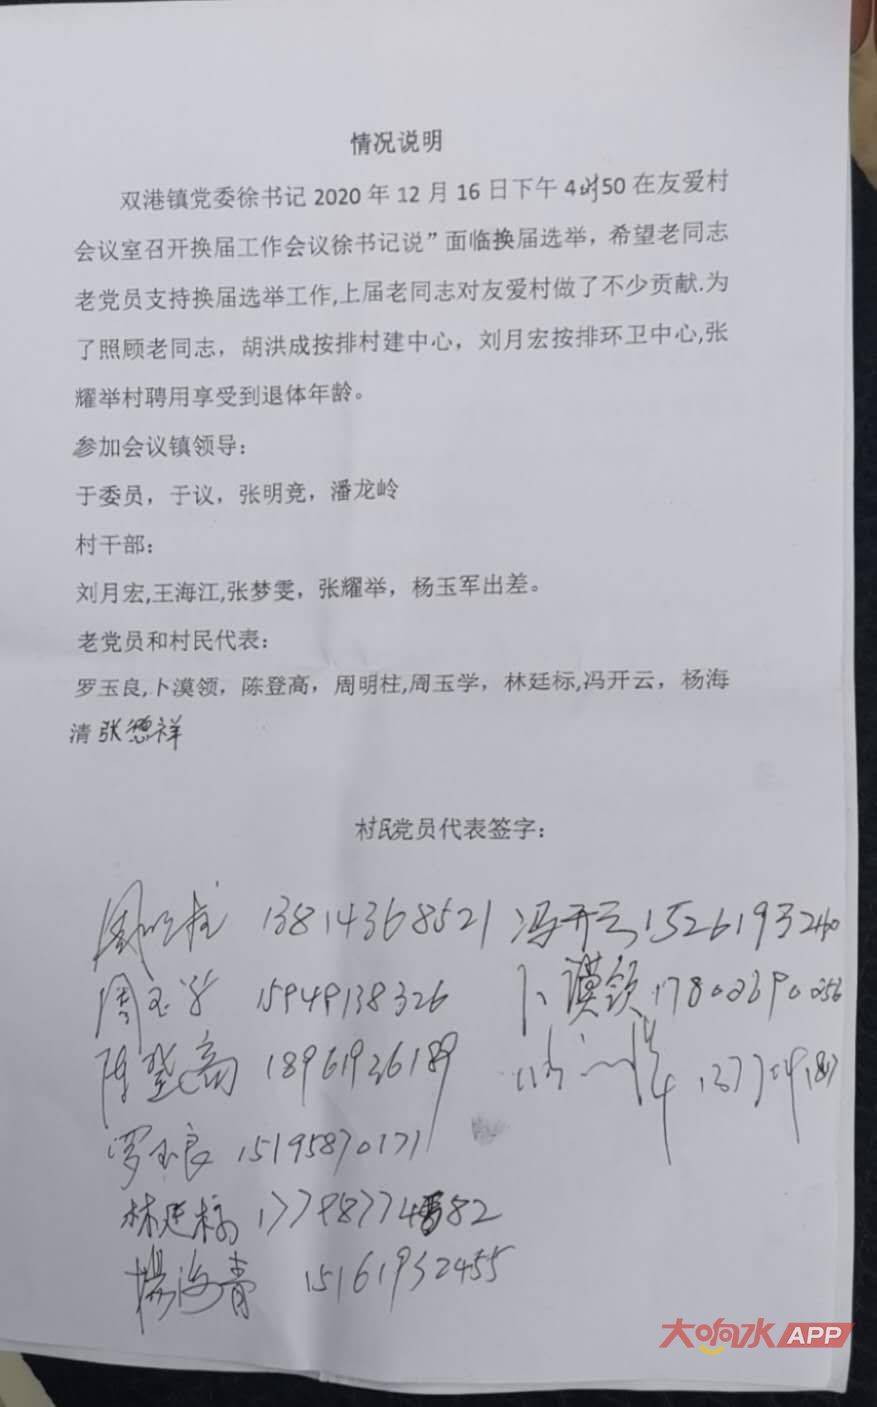 情况说明
双港镇党委徐书记2020年12月16日下午4时50在友爱村
会议室召开换届工作会议徐书记说"面临换届选举，希望老同志
老党员支持换届选举工作,上届老同志对友爱村做了不少贡献.为
了照顾老同志，胡洪成按排村建中心，刘月宏按排环卫中心,张
耀举村聘用享受到退体年龄。
参加会议镇领导：
于委员，于议，张明竞，潘龙岭
村干部：
刘月宏,王海江,张梦雯，张耀举，杨玉军出差。
老党员和村民代表：
罗玉良,卜漠领，陈登高，周明柱,周玉学，林廷标,冯开云，杨海
清 张德祥
村民党员代表签字：
周明柱 13814368521 冯开云 15261932
周玉学 15949138326 卜谟领 178
陈登高 18961936189
罗玉良 15195870171
林廷标 82
楊海青 15161932455
大响水APP